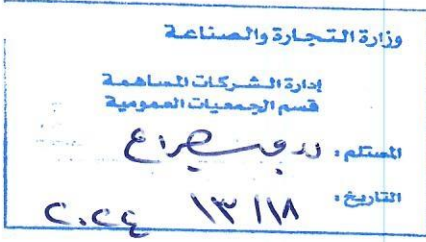 وزارة التجارة والصناعة
إدارة الشركات المساهمة
قسم الجمعيات العمومية
المستلم :
التاريخ : ١٣/١٨ ٢٠٢٤